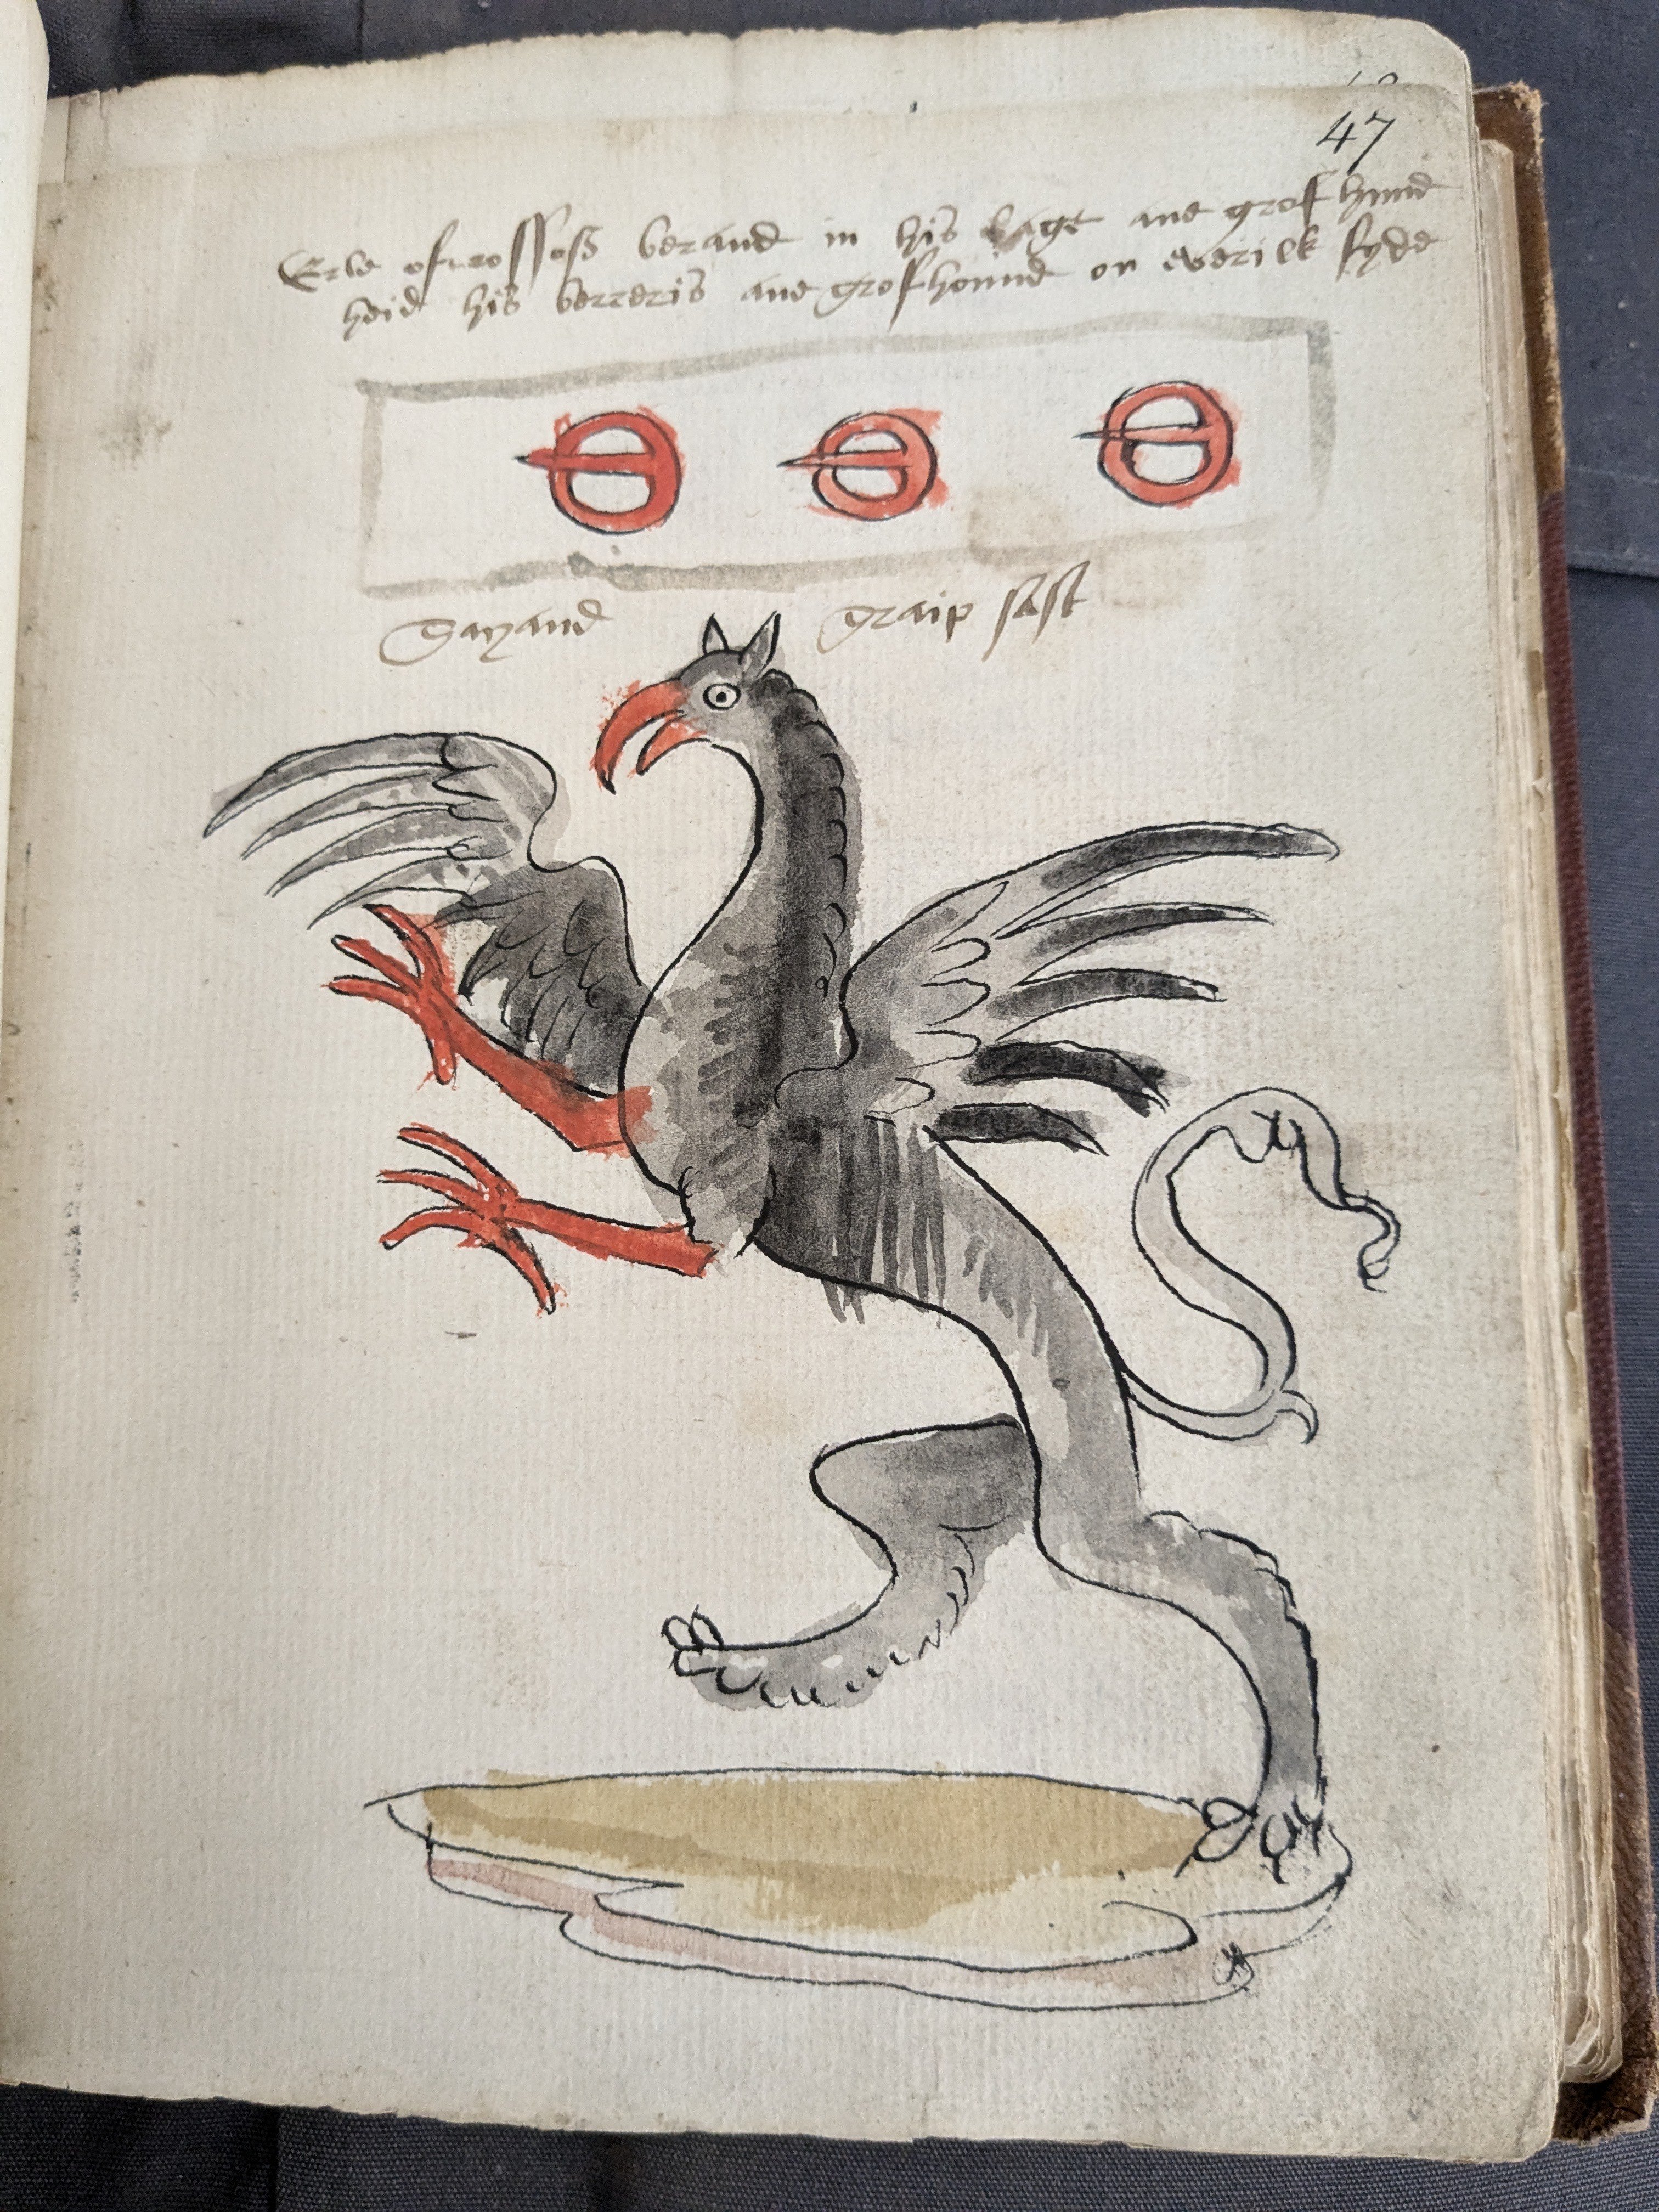 47
Erle of rossoß berand in his bage ane grof hund
heid his berreris ane grofhound on everilk syde
Sayand graip fast